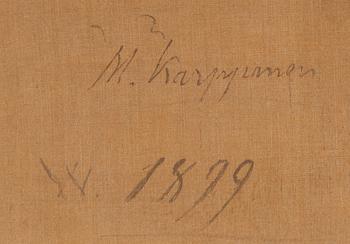 M. Karppanen
W. 1899